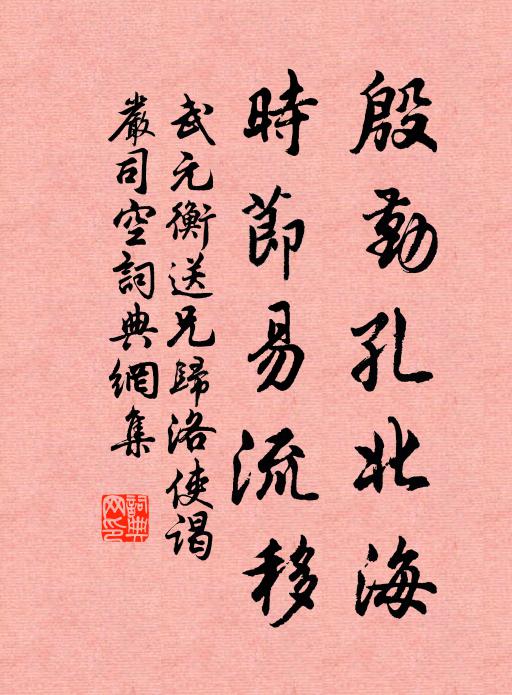 殷勤孔北海
時節易流移
武元衡送兄歸洛使謁
嚴司空詞典網集
詞典
网印